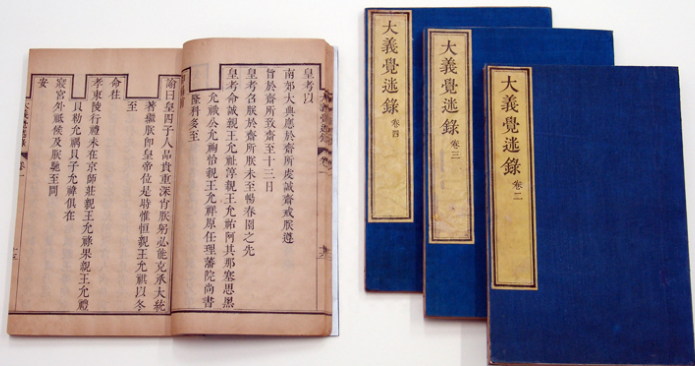 皇考以
南郊大典應於齋所虔誠齋戒朕遵
旨於齋所致齋至十三日
皇考召朕於齋所朕未至暢春園之先
皇考命誠親王允祉淳親王允祐阿其那塞思黑
允䄉公允祹怡親王允祥原任理藩院尚書
隆科多至
諭曰皇四子人品貴重深肖朕躬必能克承大統
著繼朕即皇帝位是時惟恒親王允祺以冬
至
命往
孝東陵行禮未在京師莊親王允祿果親王允禮
貝勒允禑貝子允禕俱在
寢宮外祗候及朕馳至問
安
大義覺迷錄 卷四
大義覺迷錄 卷三
大義覺迷錄 卷二